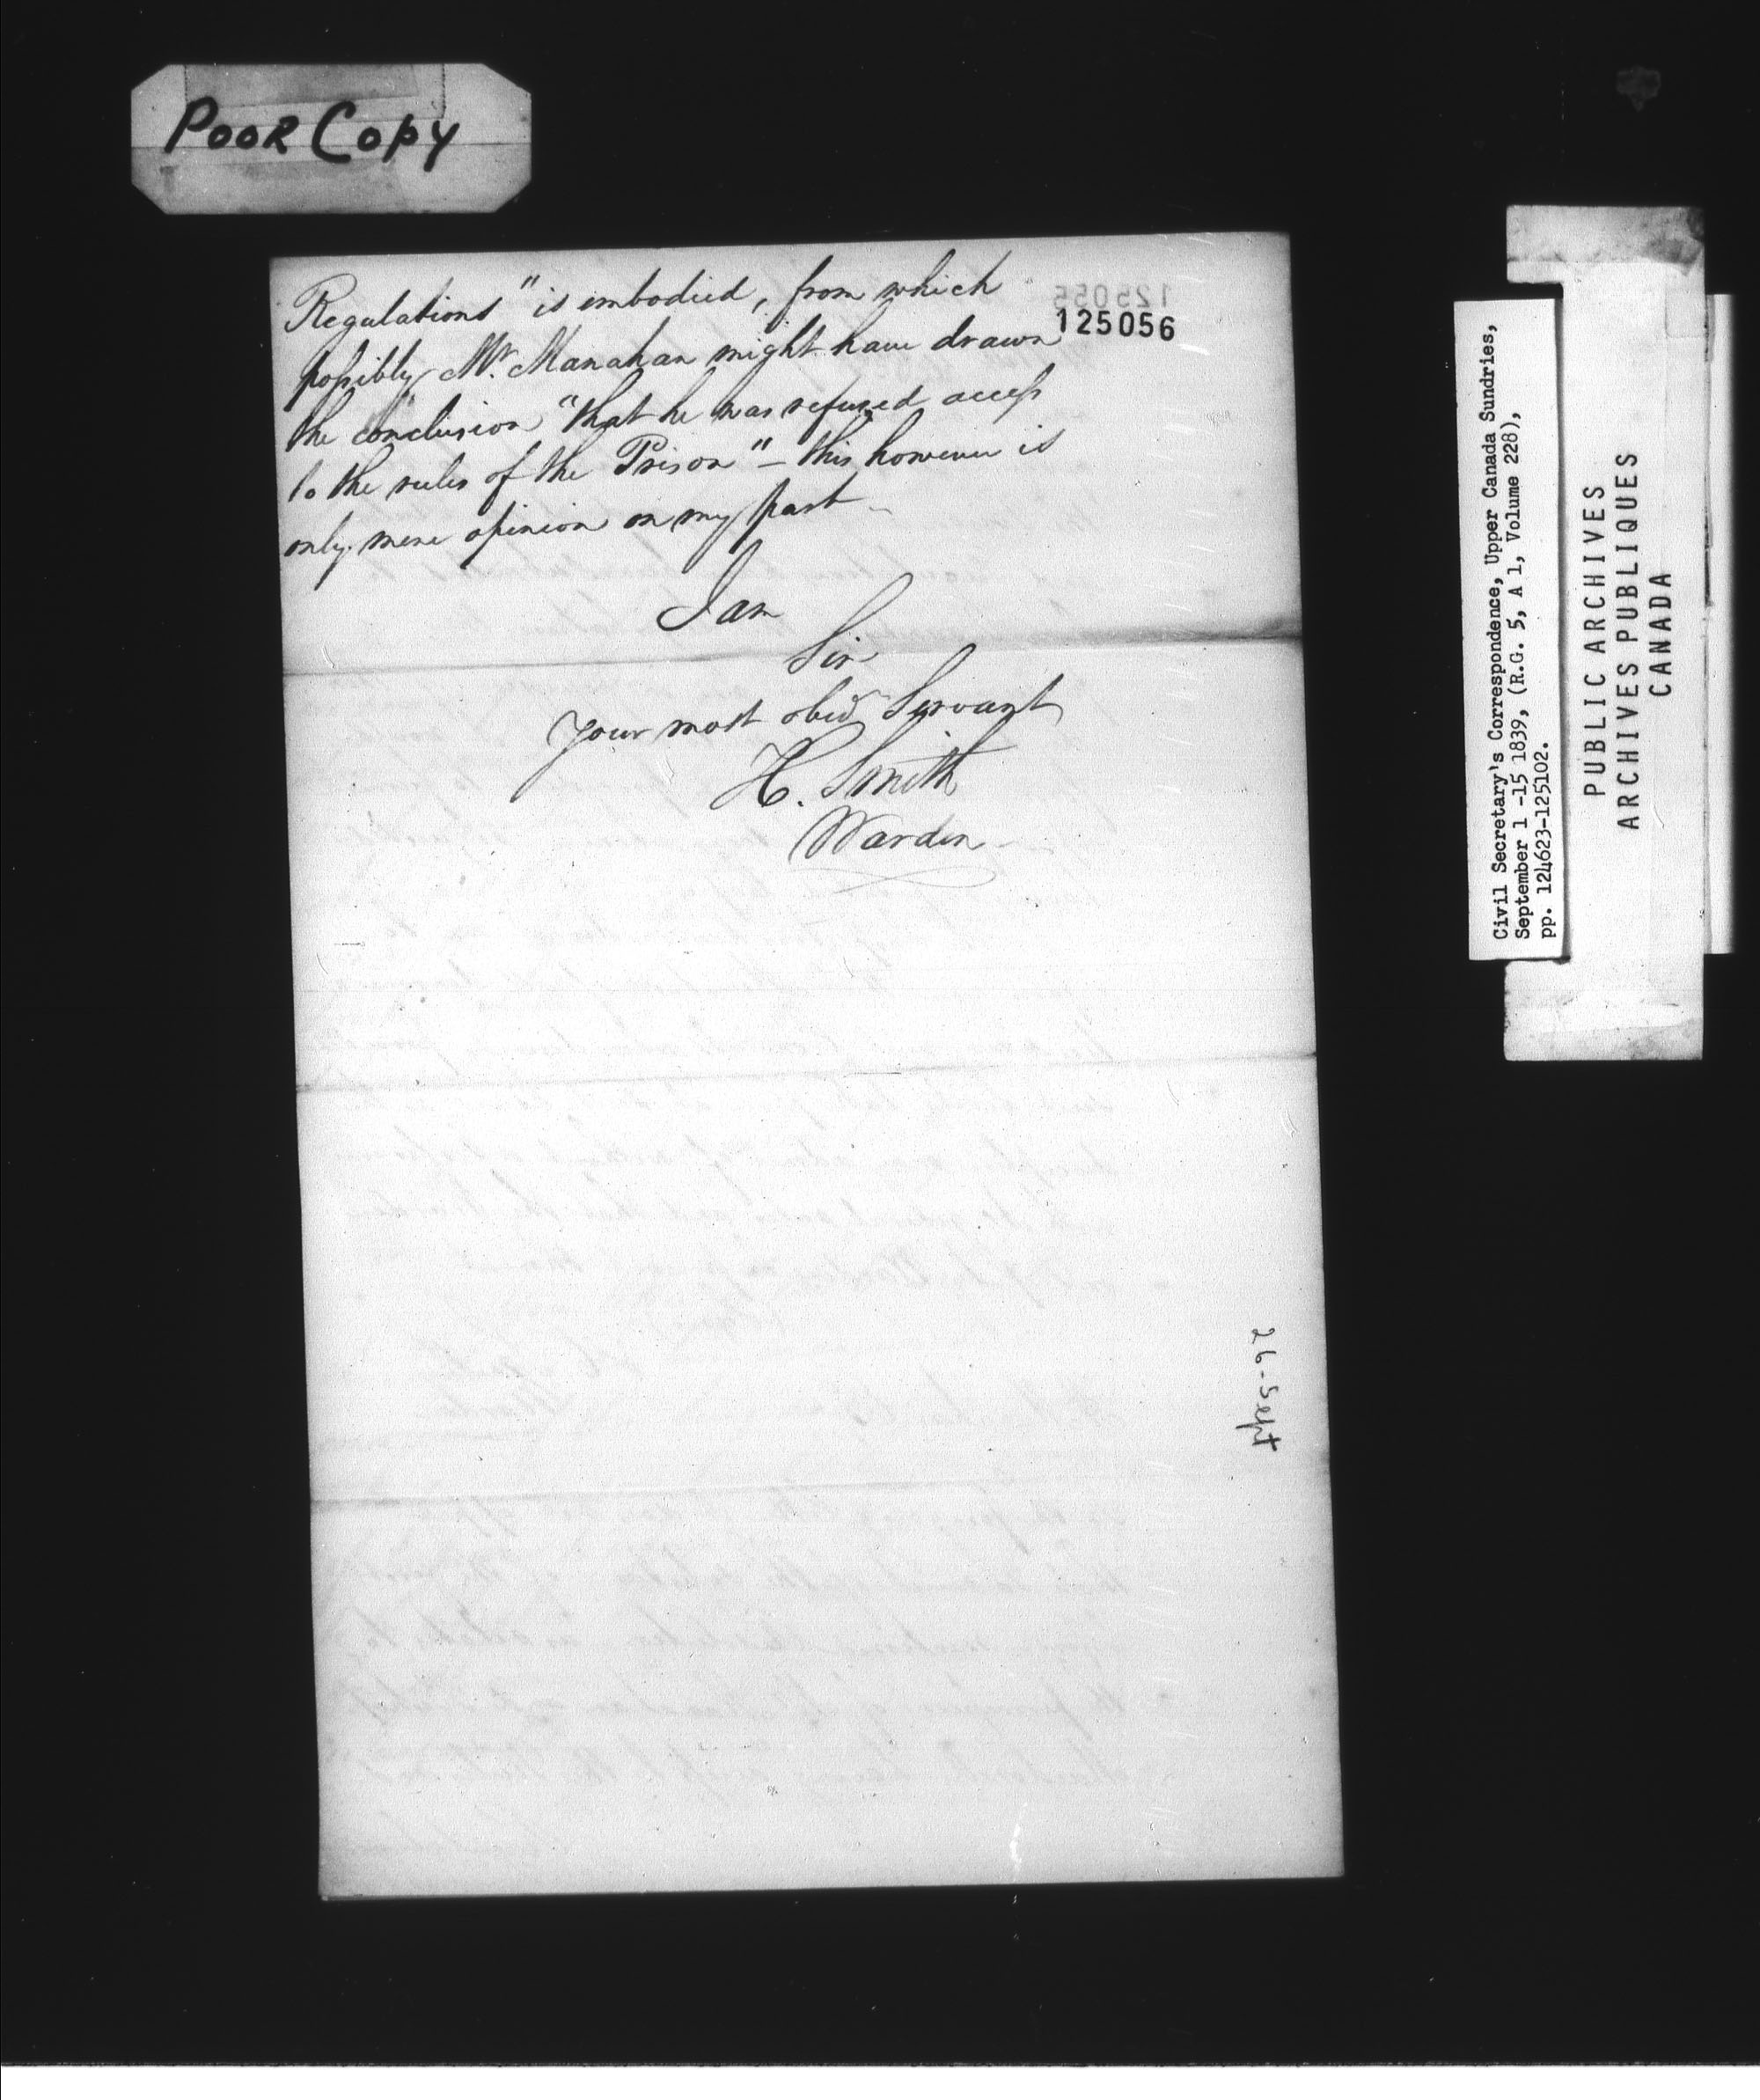 POOR COPY
125055
125056
Regulations" is embodied, from which
possibly Mr. Manahan might have drawn
the conclusion "that he was refused access
to the rules of the Prison" – this however is
only mere opinion on my part –
I am
Sir
Your most obed Servant
H. Smith
Warden
26-Sept
Civil Secretary's Correspondence, Upper Canada Sundries,
September 1 -15 1839, (R.G. 5, A 1, Volume 228),
pp. 124623-125102.
PUBLIC ARCHIVES
ARCHIVES PUBLIQUES
CANADA